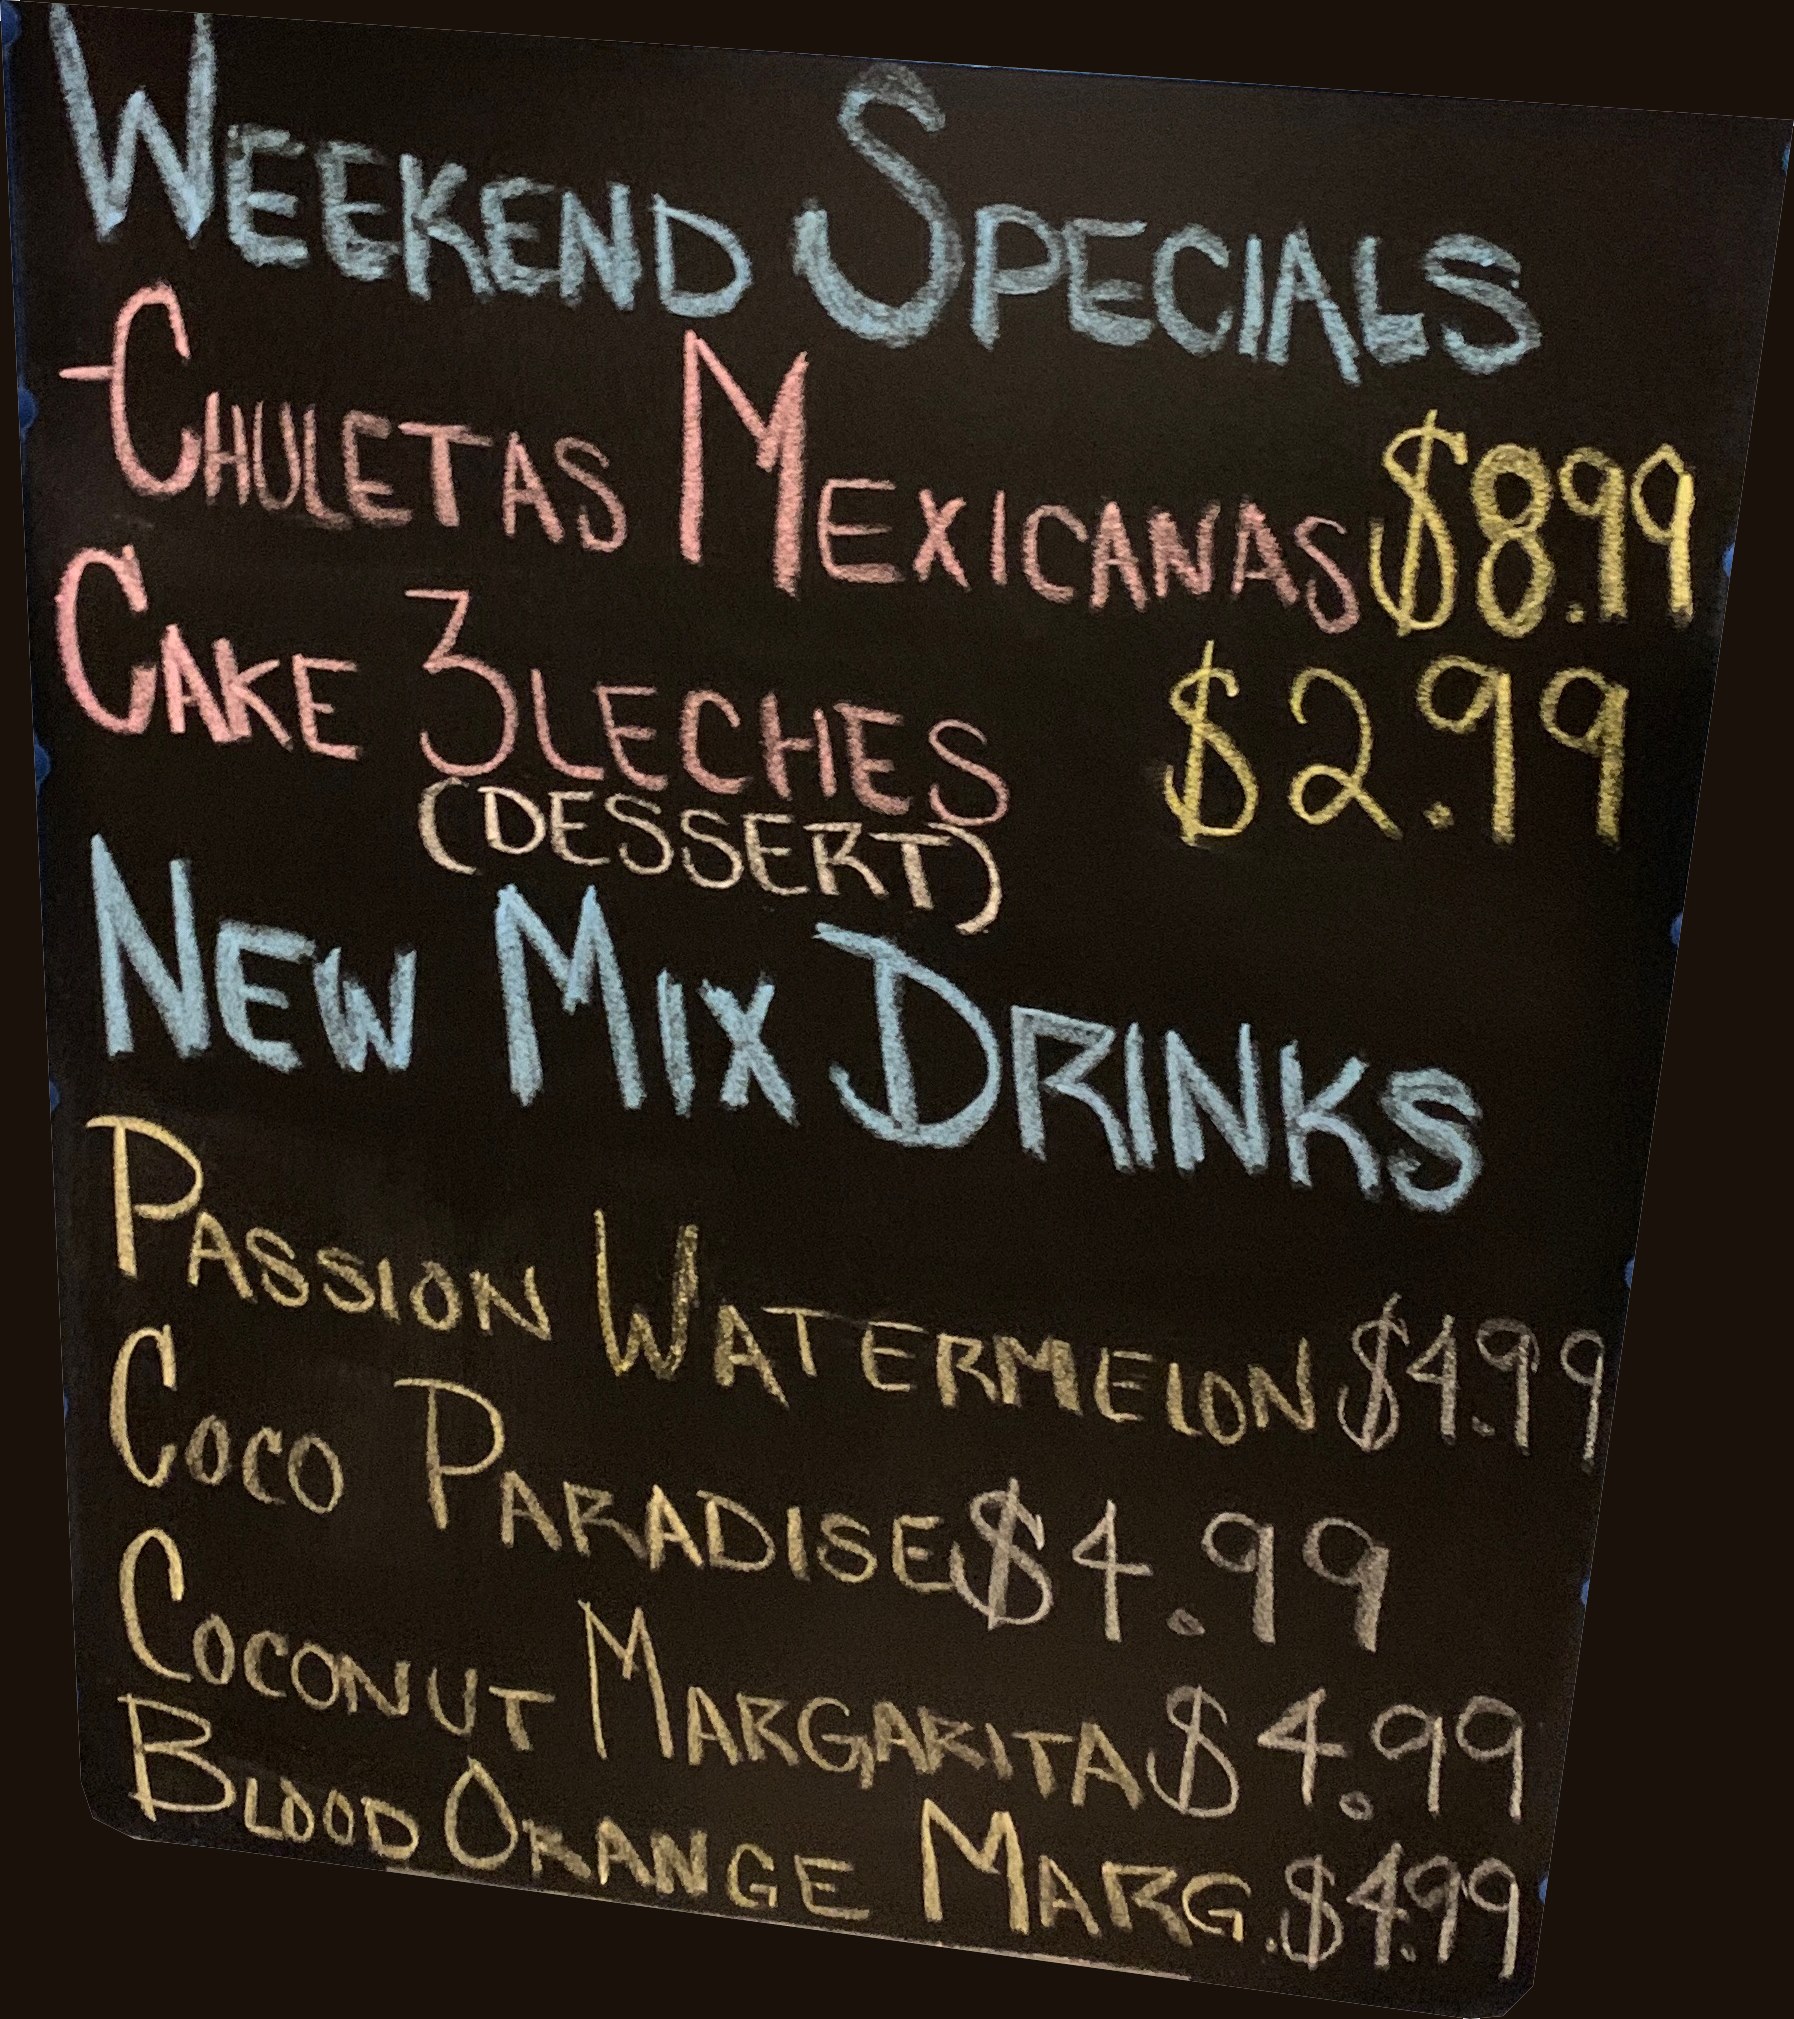 WEEKEND SPECIALS
-CHULETAS MEXICANAS $8.99
CAKE 3 LECHES $2.99
(DESSERT)
NEW MIX DRINKS
PASSION WATERMELON $4.99
COCO PARADISE $4.99
COCONUT MARGARITA $4.99
BLOOD ORANGE MARG. $4.99